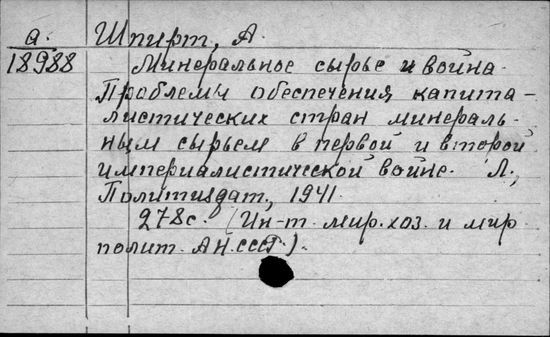 а. Шпирт, А.
18988 Минеральное сырье и война.
Проблемы обеспечения капита-
листических стран минераль-
ным сырьем в первой и второй
империалистической войне. Л.,
Политиздат, 1941.
278с. (Ин-т. мир. хоз. и мир.
полит. АН. СССР.).